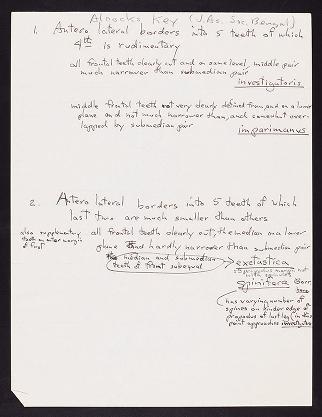 Alcocks Key (J. As. Soc. Bengal)
1. Antero lateral borders into 5 teeth of which
4th is rudimentary
all frontal teeth clearly cut and on same level, middle pair
much narrower than submedian pair
investigatoris
middle frontal teeth not very clearly defined from, and on a lower
plane and not much narrower than, and somewhat over-
lapped by submedian pair
imparimanus
2. Antero lateral borders into 5 teeth of which
last two are much smaller than others
also supplementary
tooth on outer margin
of first
all frontal teeth clearly cut, the median on a lower
plane and hardly narrower than submedian pair
the median and submedian
teeth of front subequal
exetastica
margin not
spinifera
has varying number of
spines on hinder edge of
propodus of last leg (in this
point approaches investigatoris